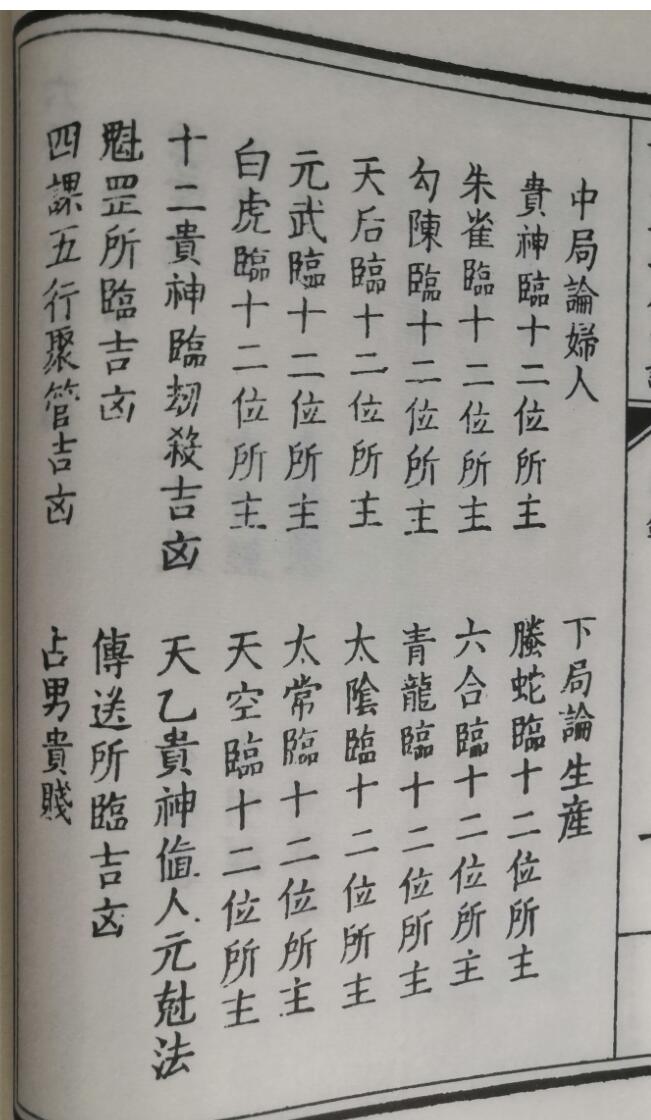 中局論婦人
下局論生產
貴神臨十二位所主
螣蛇臨十二位所主
朱雀臨十二位所主
六合臨十二位所主
勾陳臨十二位所主
青龍臨十二位所主
天后臨十二位所主
太陰臨十二位所主
元武臨十二位所主
太常臨十二位所主
白虎臨十二位所主
天空臨十二位所主
十二貴神臨刼殺吉凶
天乙貴神值人元尅法
魁罡所臨吉凶
傳送所臨吉凶
四課五行聚管吉凶
占男貴賤